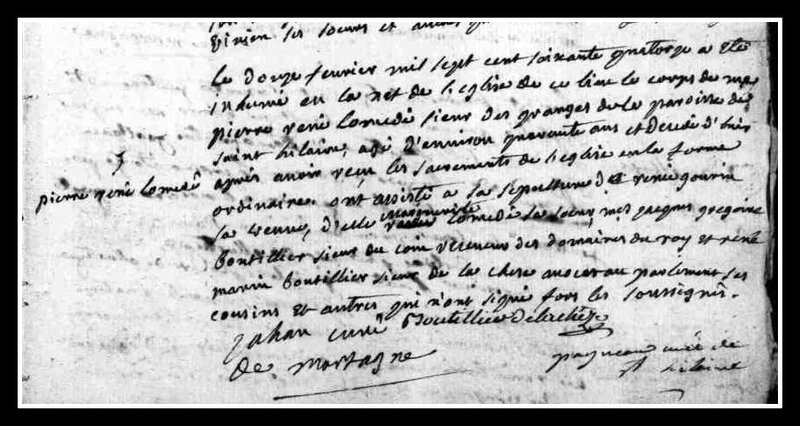 Vivien ses soeurs et autres
Le douze fevrier mil sept cent soixante quatorze a ete
inhumé en la nef de l'eglise de ce lieu le corps de me
pierre rené lomedé sieur des granges de la paroisse de
saint hilaire, agé d'environ quarante ans et decedé d'hier
après avoir recu les sacrements de l'eglise en la forme
ordinaire. ont assisté a la sepulture renée gourin
sa veuve, d'elle marguerite lomedé sa soeur, mes jacques gregoire
boutillier sieur du coin receveur des domaines du roy et rené
marin boutillier sieur de la cheze avocat au parlement ses
cousins et autres qui n'ont signé fors les soussignés.
pierre rené lomedé
Jahan curé Boutillier delachèze
de mortagne
paqueau curé de
st hilaire